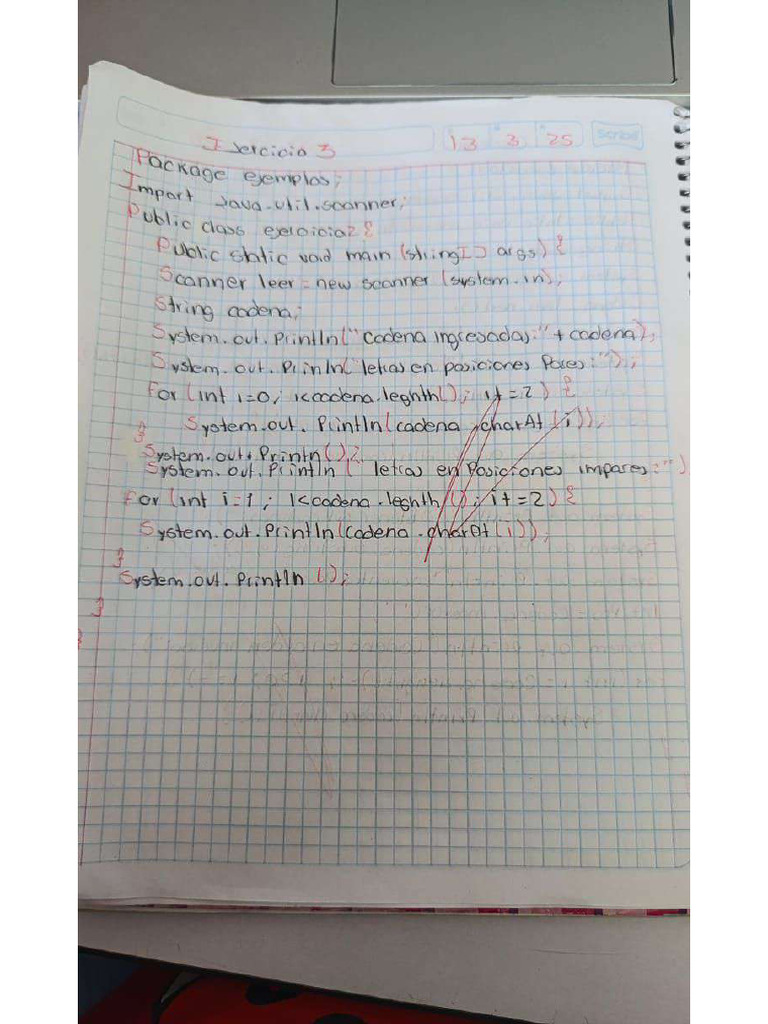 Ejercicio 3
13 3 25
Scribe
Package ejemplos;
Import Java.util.scanner;
Public class ejercicio2 {
Public static void main (string[] args) {
Scanner leer = new scanner (system.in);
String cadena;
System.out.Println("cadena ingresada:" + cadena);
System.out.Println("letras en posiciones Pares:");
For (int i=0; i<cadena.leghth(); i+=2) {
System.out.Println(cadena.charAt(i));
}
System.out.Println();
System.out.Println("letras en Posiciones impares:")
For (int i=1; i<cadena.leghth(); i+=2) {
System.out.Println(cadena.charAt(i));
}
System.out.Println();
}
}